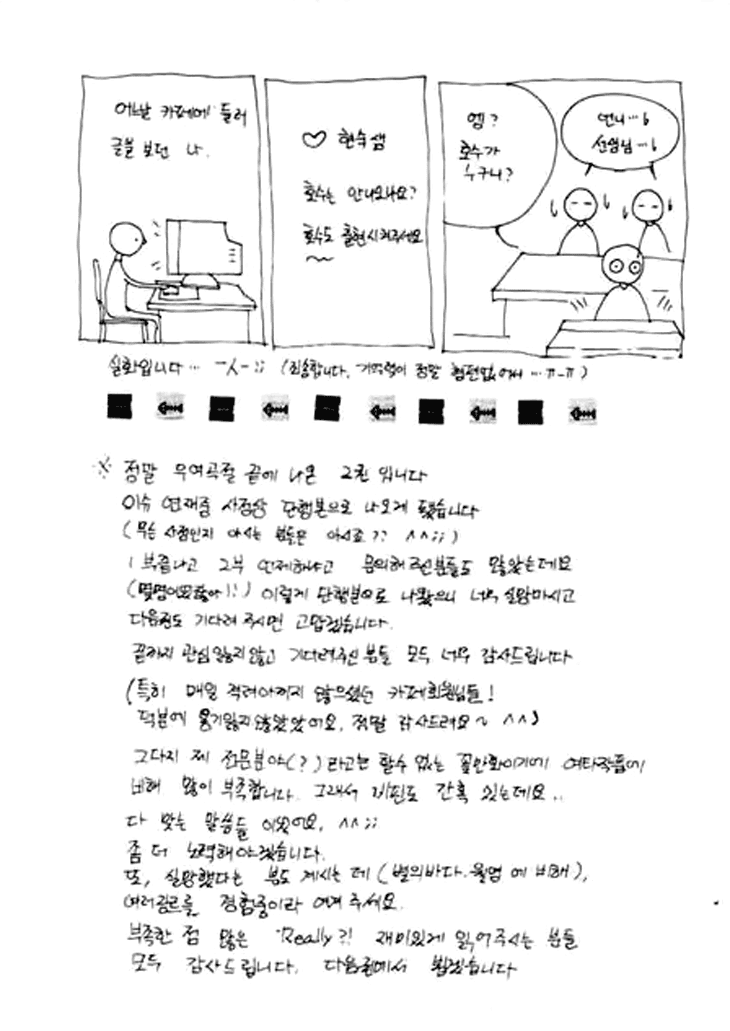 어느날 카페에 들러
글을 보던 나.
♡ 현수샘
호수는 안나오나요?
호수도 출현시켜주세요
~~
엥?
호수가
누구니?
언니…!
선생님…!
실화입니다… ㅡ人ㅡ;; (죄송합니다. 기억력이 정말 형편없어서…ㅠ-ㅠ)
※ 정말 우여곡절 끝에 나온 2권 입니다
이슈 연재중 사정상 단행본으로 나오게 됐습니다
(무슨 사정인지 아시는 분들은 아시죠?? ^^;;)
1부끝나고 2부 언제하냐고 문의해주신분들도 많았는데요
(몇명이었잖아!!) 이렇게 단행본으로 나왔으니 너무 실망마시고
다음권도 기다려 주시면 고맙겠습니다.
끝까지 관심잃지않고 기다려주신 분들 모두 너무 감사드립니다
(특히 매일 격려아끼지 않으셨던 카페회원님들!
덕분에 용기잃지않았었어요. 정말 감사드려요~ ^^)
그다지 제 전문분야(?)라고는 할수 없는 꽃만화이기에 여타작품에
비해 많이 부족합니다. 그래서 비판도 간혹 있는데요..
다 맞는 말씀들 이었어요. ^^;;
좀 더 노력해야겠습니다.
또, 실망했다는 분도 계시는 데 (별의바다.월영 에 비해),
여러장르를 경험중이라 여겨 주세요.
부족한 점 많은 "Really?! 재미있게 읽어주시는 분들
모두 감사드립니다. 다음권에서 뵙겠습니다